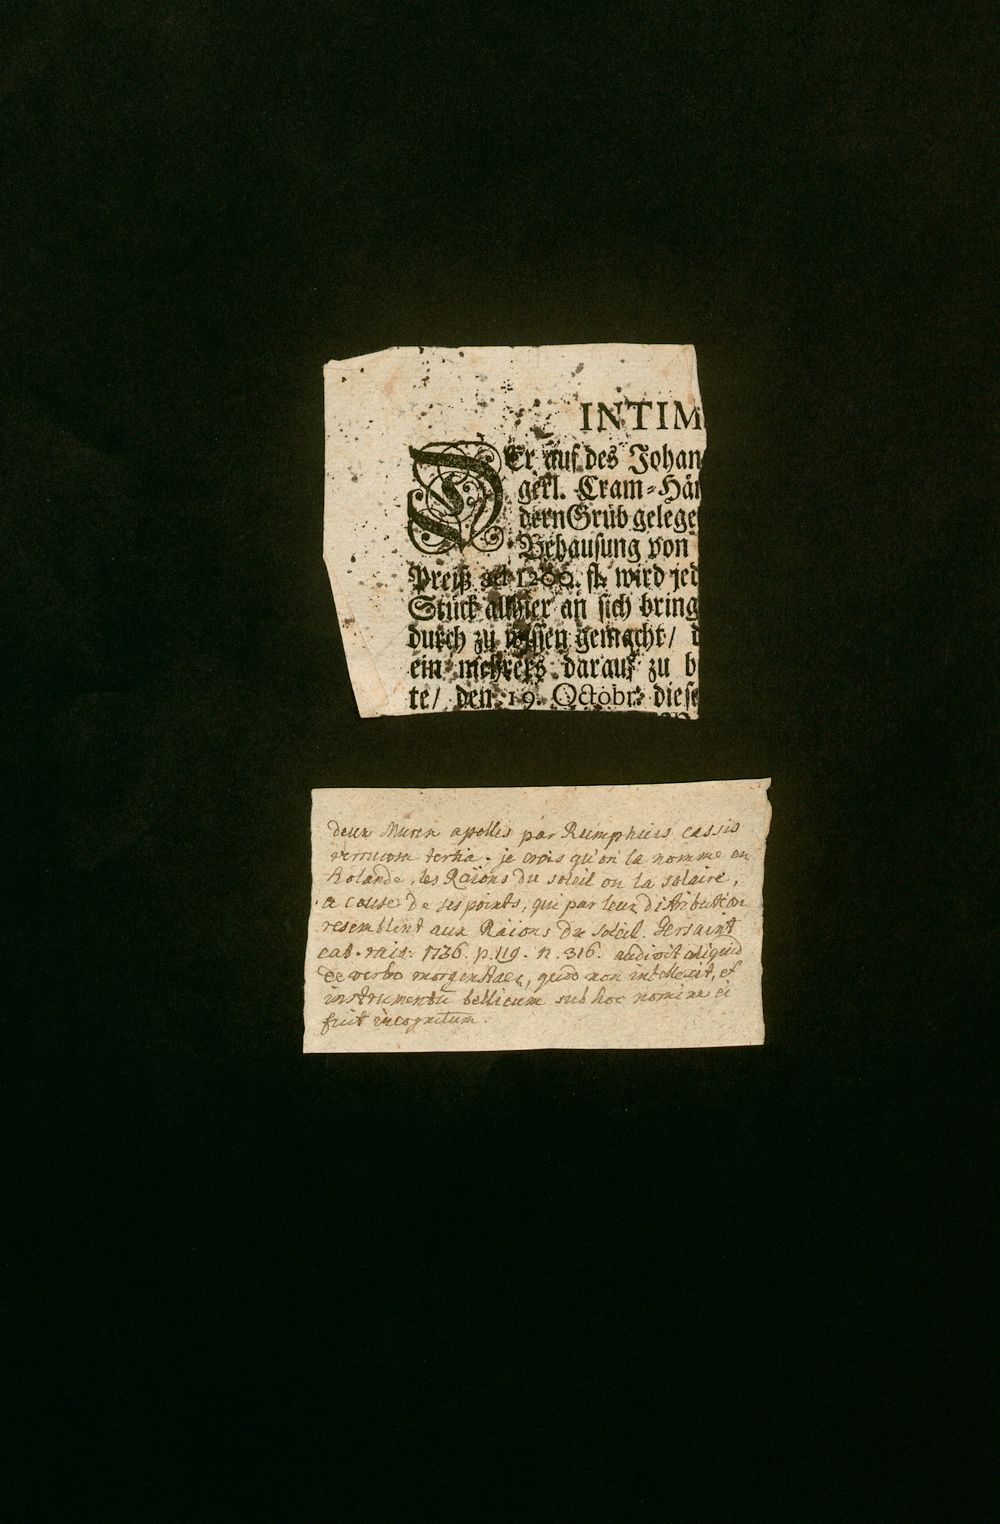 INTIM
DEr auf des Johan
gerl. Cram-Hän
dern Grub gelege
Behausung von
Preiß ad 1200. fl. wird jed
Stuck allhier an sich bring
durch zu wissen gemacht/ d
ein mehrers darauf zu b
te/ den 19. Octobr: diese
deux Murex apellés par Rumphius cassis
verrucosa tertia. je crois qu'on la nomme en
Holande, les Raions du soleil ou la solaire,
a cause de ses points, qui par leur distribution
resemblent aux Raions du soleil. Gersaint
cat. rais: 1736. p. 119. n. 316. audivit aliquid
de verbo morgenstaer, quod non intellexit, et
instrumentu bellicum sub hoc nomine ei
fuit incognitum.